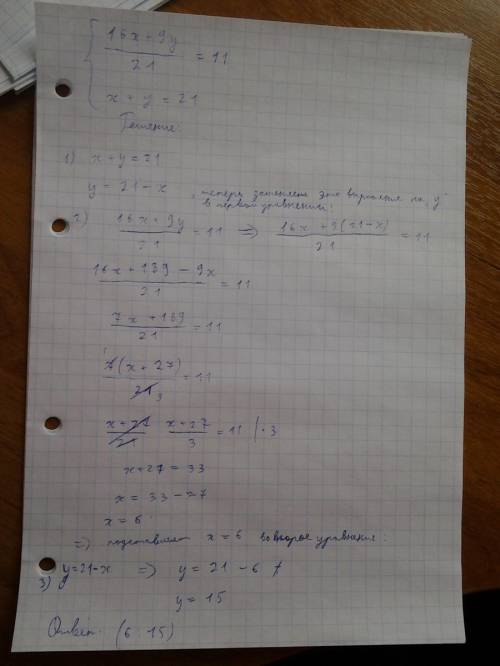 16x + 9y
21
= 11
x + y = 21
Решение:
1) x + y = 21
y = 21 - x , теперь заменяем это выражение на "y"
в первой уравнении:
2) 16x + 9y
21
= 11 => 16x + 9(21-x)
21
= 11
16x + 189 - 9x
21
= 11
7x + 189
21
= 11
7(x + 27)
21 3
= 11
x + 27
21
x + 27
3
= 11 | · 3
x + 27 = 33
x = 33 - 27
x = 6
=> подставляем x = 6 во второе уравнение:
3) y = 21 - x => y = 21 - 6
y = 15
Ответ: (6; 15)